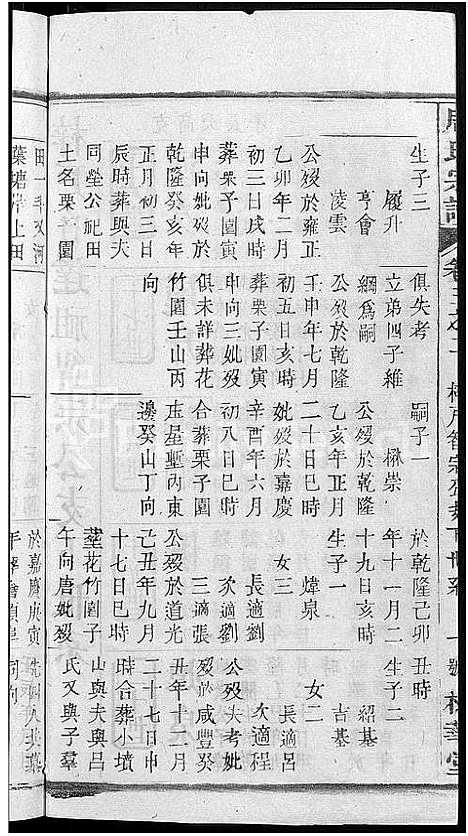 氏宗譜
生子三
履升
亨會
凌雲
公歿於雍正
乙卯年二月
初三日戌時
葬栗子園寅
申向妣歿於
乾隆癸亥年
正月初三日
辰時葬與夫
同塋公祀田
土名栗子園
俱失考
立弟四子維
綱爲嗣
公歿於乾隆
壬申年七月
初五日亥時
葬栗子園寅
申向三妣歿
俱未詳葬花
竹園壬山丙
向
嗣子一
楙崇
公歿於乾隆
乙亥年正月
二十日巳時
妣歿於嘉慶
辛酉年六月
初八日巳時
合葬栗子園
星塹內東
邊癸山丁向
於乾隆己卯
年十一月二
十九日亥時
生子一
煒泉
女三
長適劉
次適劉
三適張
公歿於道光
己丑年九月
十七日巳時
塟花竹園子
午向唐妣歿
於嘉慶庚寅
丑時
生子二
紹基
吉基
女二
長適呂
次適程
公歿失考妣
歿於咸豐癸
丑年十二月
二十七日申
時合葬小墳
山與夫與呂
氏又與子羣